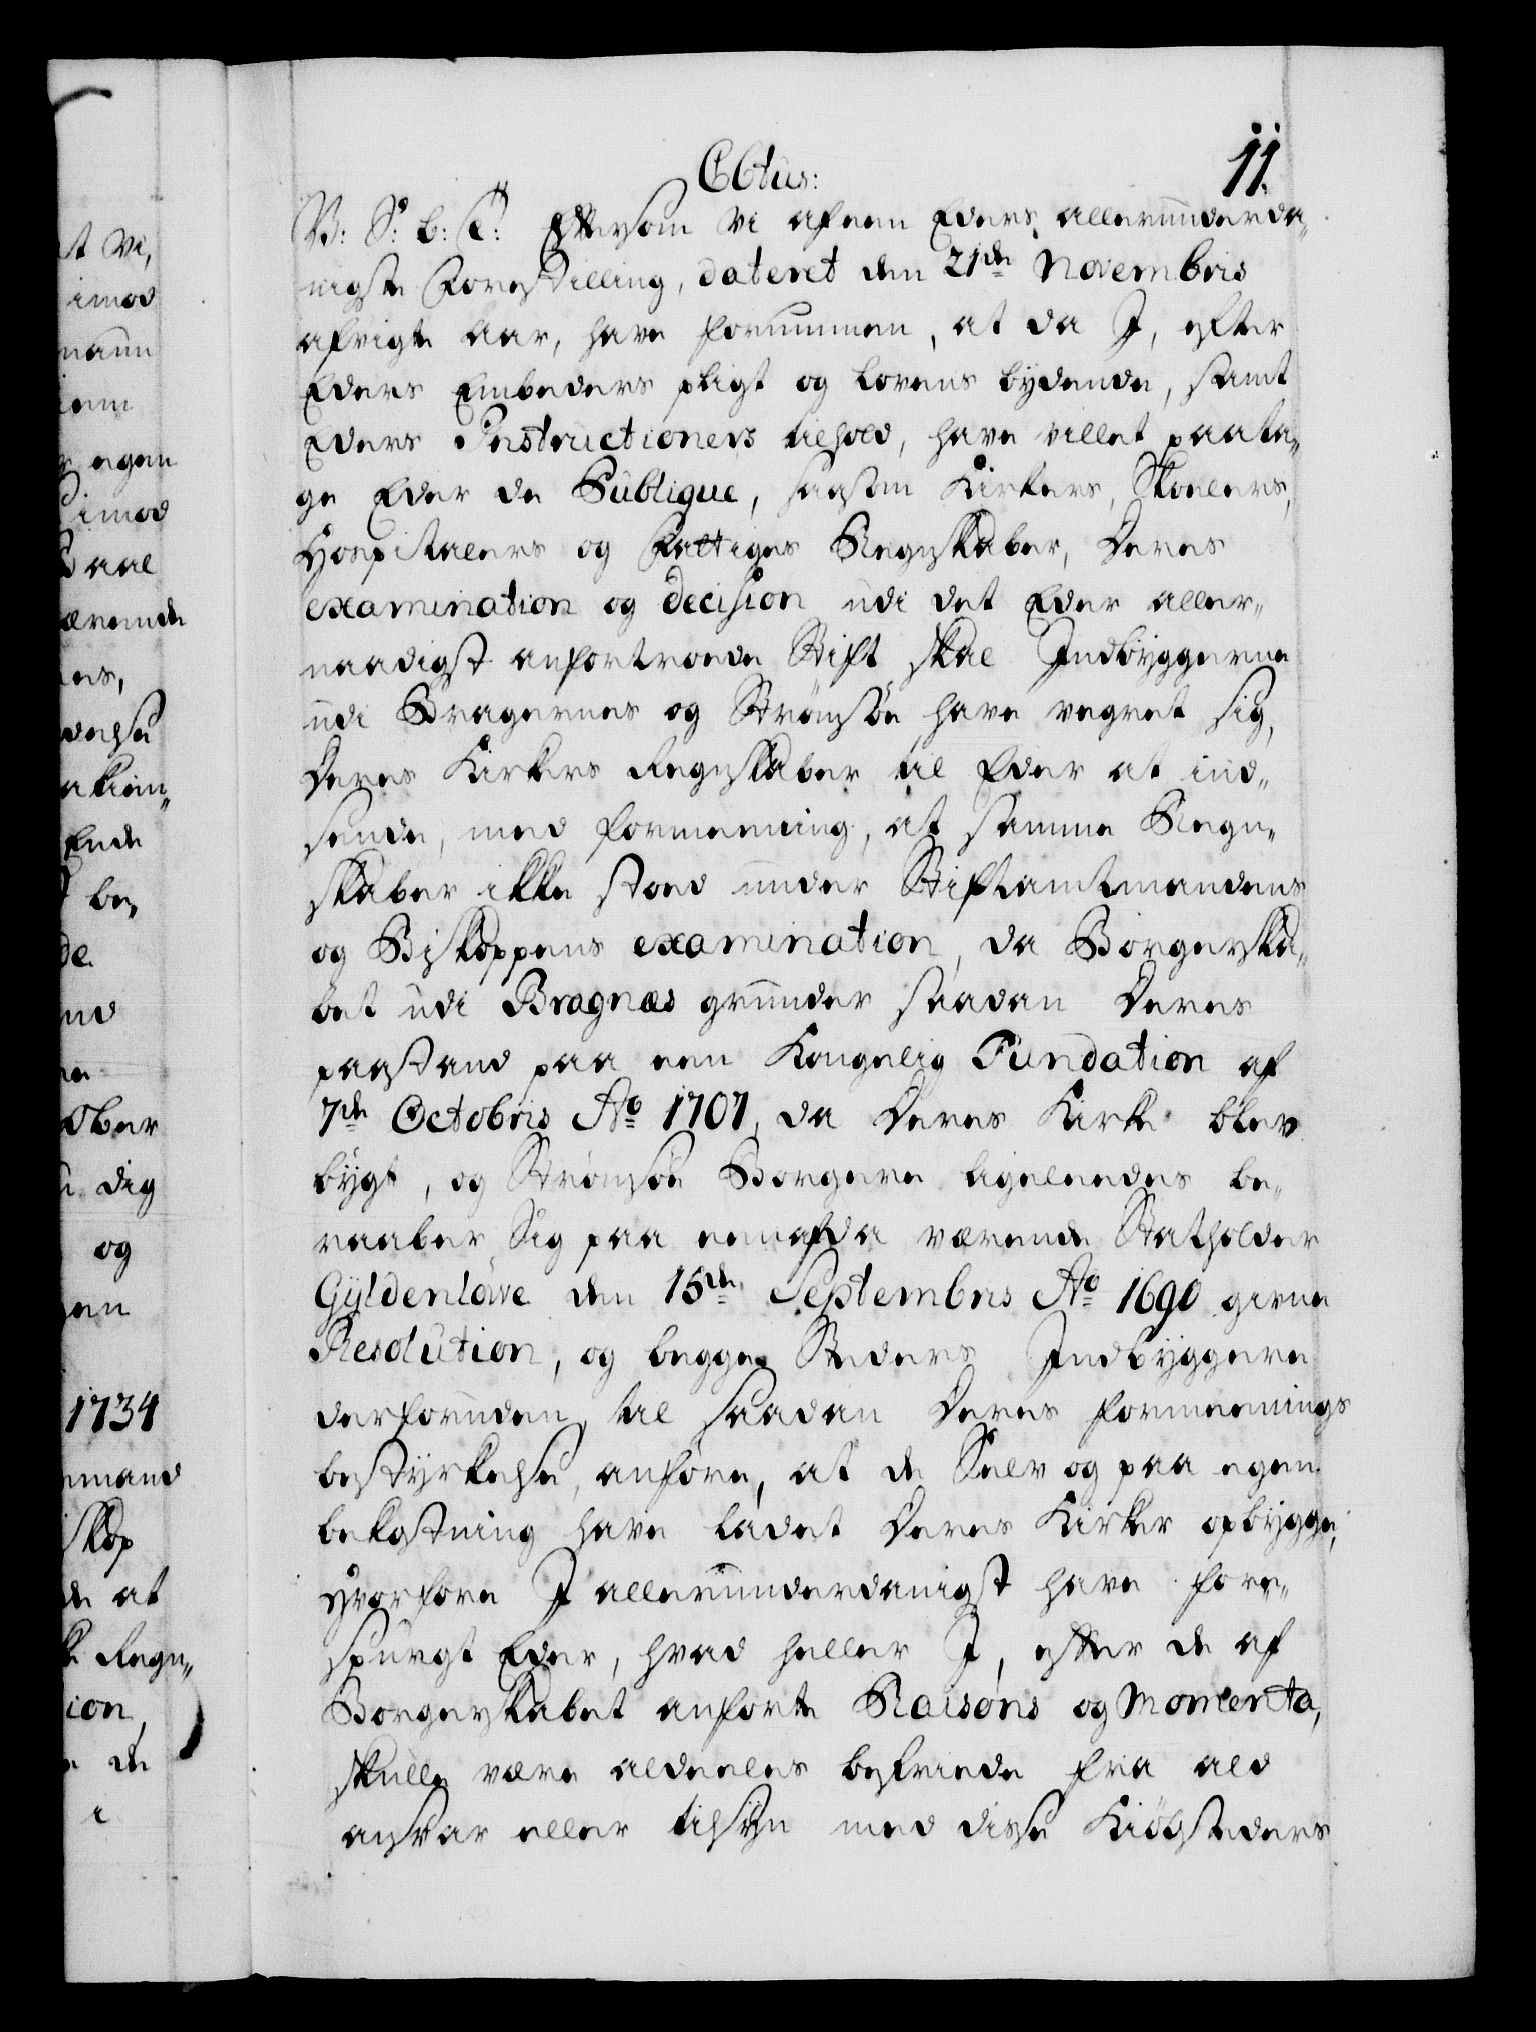 11.
C6tus:
V: S: b: C: Eftersom Vi af een Eders allerunderda-
nigste Forestilling, dateret den 21de Novembris
afvigte Aar, have fornummen, at da I, efter
Eders Embeders pligt og Lovens bydende, samt
Eders Instructioners tilhold, have villet paata-
ge Eder de Publique, saasom Kirkers, Skoelers,
Hospitalers og Fattiges Regnskaber, Deres
examination og decision udi det Eder aller-
naadigst anfortroede Stift, skal Indbyggerne
udi Bragernes og Strömsöe have vegret sig,
Deres Kirkers Regnskaber til Eder at ind-
sende, med formeening, at samme Regn-
skaber ikke stoed under Stiftamtmandens
og Biskoppens examination, da Borgerska-
bet udi Bragnæs grunder saadan Deres
paastand paa een Kongelig Fundation af
7de Octobris Ao 1707, da Deres Kirke blev
bygt, og Strömsöe Borgere ligeleedes be-
raaber Sig paa een af da værende Statholder
Gyldenlöwe den 15de Septembris Ao 1690 givne
Resolution, og begge Steders Indbyggere
derforuden, til saadan Deres formeenings
bestyrkelse, anföre, at de Selv og paa egen
bekostning have ladet Deres Kirker opbygge,
hvorfore I allerunderdanigst have fore-
spurgt Eder, hvad heller I, efter de af
Borgerskabet anforte Raisons og Momenta,
skulle være aldeeles befriede fra ald
ansvar eller tilsyn med disse Kiöbsteders
st Vi,
imod
egen
imod
be-
de
Ober
dig
og
1734
skop
de at
Regn-
ion,
de
i